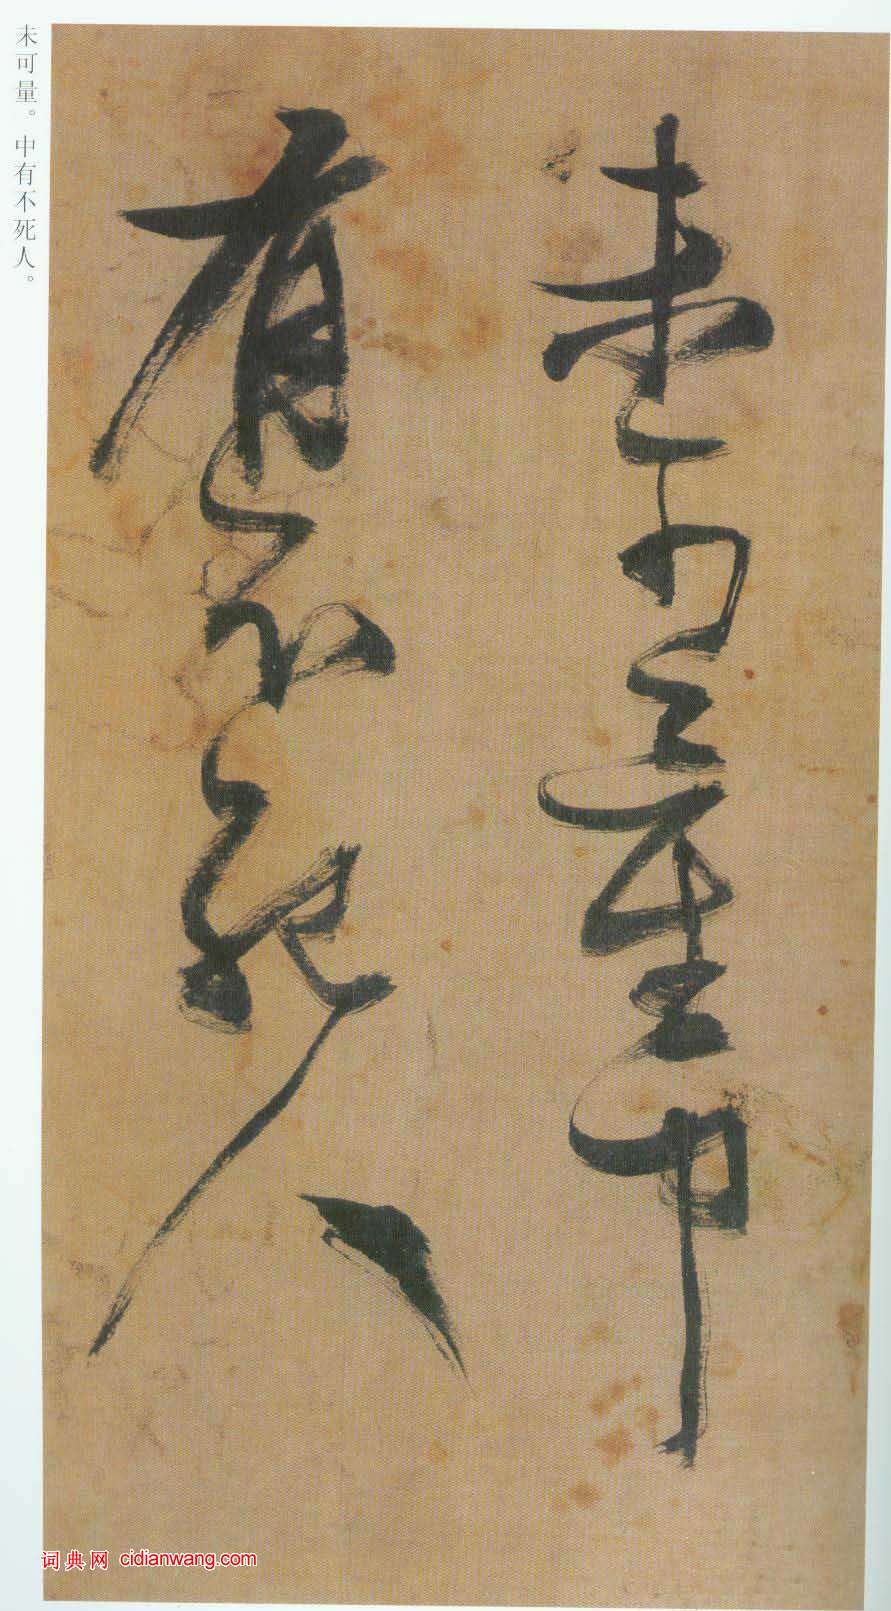 未可量中
有不死人
未可量。中有不死人。
词典网 cidianwang.com